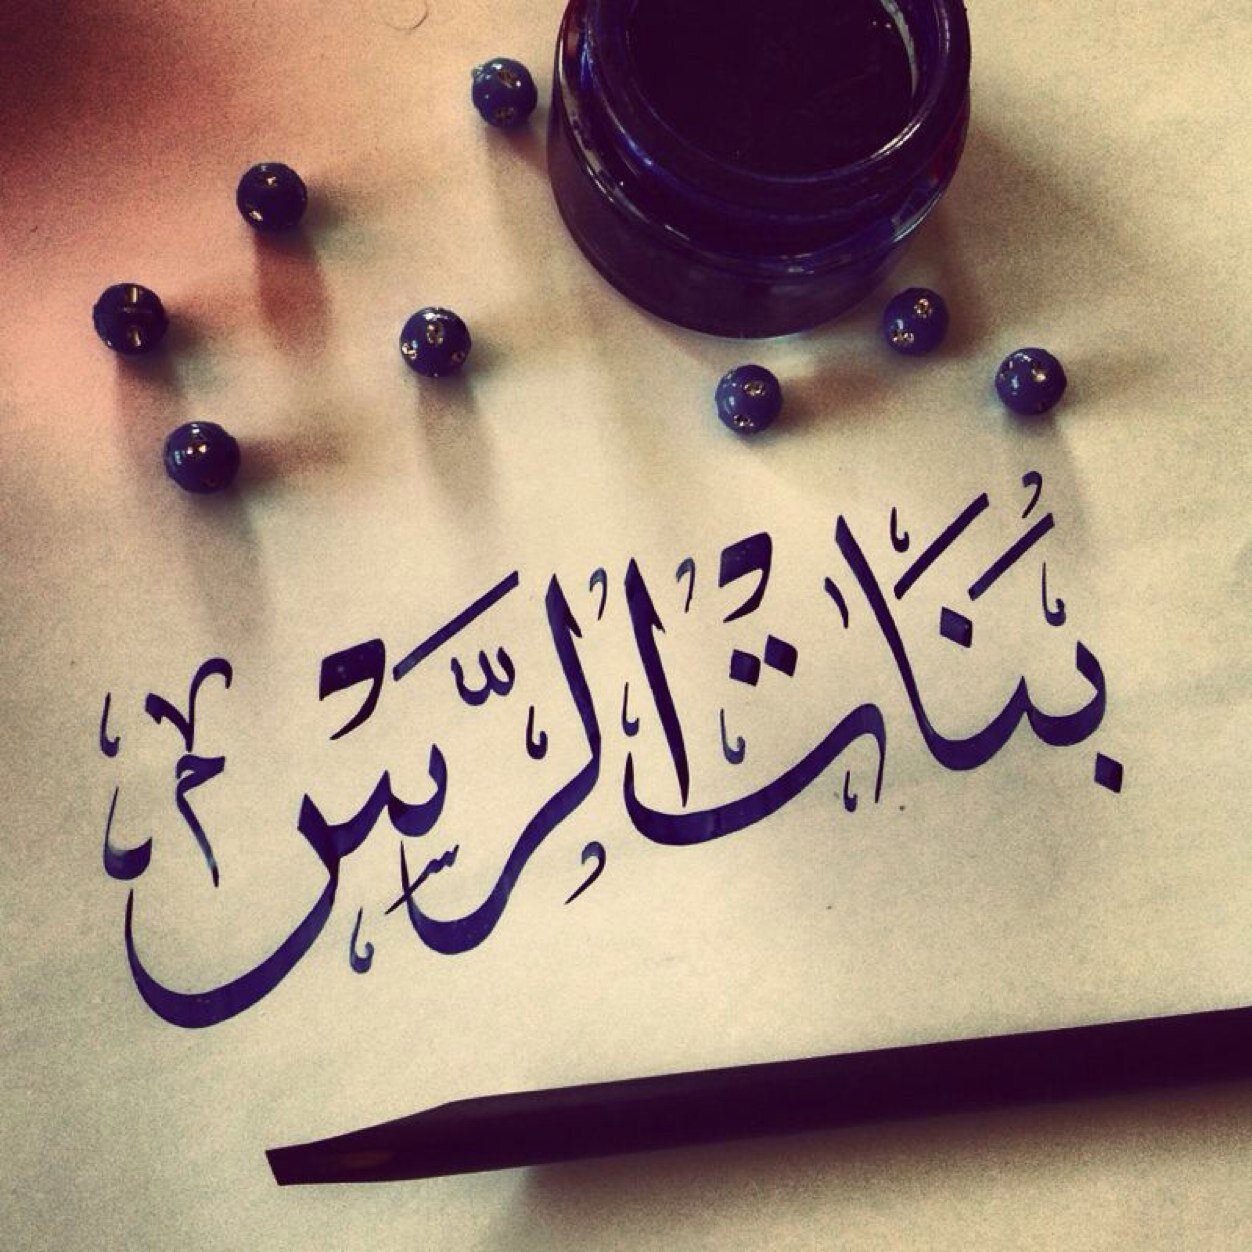 بَُنَاتُ الرَّسْ